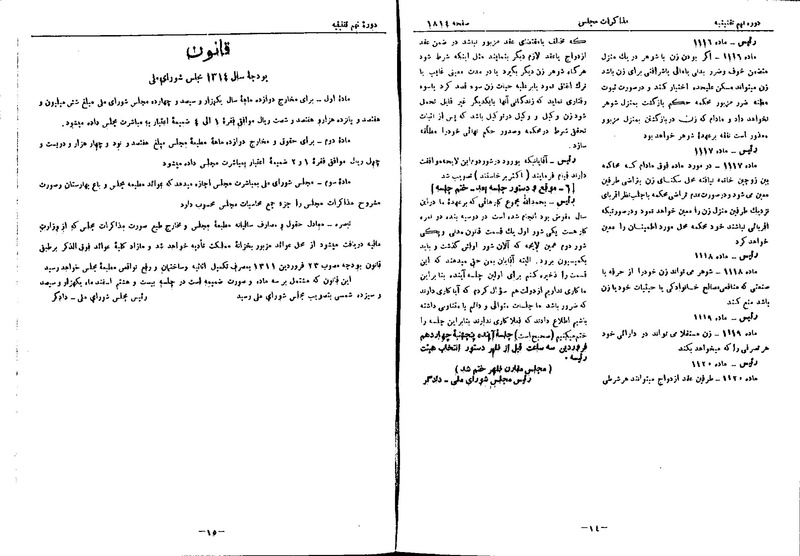 دوره نهم تقنینیه
مذاکرات مجلس
صفحه ۱۸۱۴
رئیس - ماده ۱۱۱۶
ماده ۱۱۱۶ - اگر بودن زن با شوهر در یك منزل
متضمن خوف ضرر بدنی یا مالی یا شرافتی برای زن باشد
زن میتواند مسکن علیحده اختیار کند و درصورت ثبوت
مظنه ضرر مزبور محکمه حکم بازگشت بمنزل شوهر
نخواهد داد و مادام که زن در بازگشتن بمنزل مزبور
معذور است نفقه برعهدهٔ شوهر خواهد بود
رئیس - ماده ۱۱۱۷
ماده ۱۱۱۷ - در مورد ماده فوق مادام که محاکمه
بین زوجین خاتمه نیافته محل سکنای زن بتراضی طرفین
معین می شود و درصورت عدم تراضی محکمه با جلب نظر اقربای
نزدیك طرفین منزل زن را معین خواهد نمود و درصورتیکه
اقربائی نباشند خود محکمه محل مورد اطمینان را معین
خواهد کرد
رئیس - ماده ۱۱۱۸
ماده ۱۱۱۸ - شوهر می تواند زن خود را از حرفه یا
صنعتی که منافی مصالح خانوادگی یا حیثیات خود یا زن
باشد منع کند
رئیس - ماده ۱۱۱۹
ماده ۱۱۱۹ - زن مستقلا می تواند در دارائی خود
هر تصرفی را که میخواهد بکند
رئیس - ماده ۱۱۲۰
ماده ۱۱۲۰ - طرفین عقد ازدواج میتوانند هر شرطی
که مخالف با مقتضای عقد مزبور نباشد در ضمن عقد
ازدواج یا عقد لازم دیگر بنمایند مثل اینکه شرط شود
هرگاه شوهر زن دیگر بگیرد یا در مدت معینی غایب یا
ترك انفاق نمود یا بر علیه حیات زن سوء قصد کرد یا سوء
رفتاری نماید که زندگانی آنها بایکدیگر غیر قابل تحمل
شود زن وکیل و وکیل در توکیل باشد که پس از اثبات
تحقق شرط در محکمه و صدور حکم نهائی خود را مطلقه
سازد.
رئیس - آقایانیکه بورود در شور دوم این لایحه موافقت
دارند قیام فرمایند (اکثر برخاستند) تصویب شد
[۶ - موقع و دستور جلسه بعد - ختم جلسه]
رئیس - بحمدالله مجموع کارهائی که برعهدهٔ ما در این
سال مفروض بود انجام شده است در دوسیه بنده دو نمره
کار هست یکی شور اول یك قسمت قانون مدنی ویکی
شور دوم همین لایحه که الان شور اولش گذشت و باید
بکمیسیون برود. البته آقایان بمن حق میدهند که این
قسمت را ذخیره کنم برای اولین جلسه آینده بنا بر این
ما کاری نداریم از دولت هم سؤال کردیم که آیا کاری دارند
که ضرور باشد ما جلسات متوالی و دائم یا متناوبی داشته
باشیم اطلاع دادند که فعلا کاری ندارند بنابر این جلسه را
ختم میکنیم (صحیح است) جلسه آینده پنجشنبه چهاردهم
فروردین سه ساعت قبل از ظهر دستور انتخاب هیئت
رئیسه.
(مجلس مقارن ظهر ختم شد)
رئیس مجلس شورای ملی - دادگر
-۱٤-
دورهٔ نهم تقنینیه
قانون
بودجهٔ سال ۱۳۱٤ مجلس شورای ملی
مادهٔ اول - برای مخارج دوازده ماههٔ سال یکهزار و سیصد و چهارده مجلس شورای ملی مبلغ شش میلیون و
هفتصد و پانزده هزار و هفتصد و شصت ریال موافق فقرهٔ ۱ الی ٤ ضمیمهٔ اعتبار به مباشرت مجلس داده میشود.
مادهٔ دوم - برای حقوق و مخارج دوازده ماههٔ مطبعهٔ مجلس مبلغ هفتصد و نود و چهار هزار و دویست و
چهل ریال موافق فقرهٔ ۱ و ۲ ضمیمهٔ اعتبار بمباشرت مجلس داده میشود
مادهٔ سوم - مجلس شورای ملی بمباشرت مجلس اجازه میدهد که عوائد مطبعهٔ مجلس و باغ بهارستان و صورت
مشروح مذاکرات مجلس را جزء جمع محاسبات مجلس محسوب دارد
تبصره - معادل حقوق و مصارف سالیانهٔ مطبعهٔ مجلس و مخارج طبع صورت مذاکرات مجلس که از وزارت
مالیه دریافت میشود از محل عوائد مزبور بخزانهٔ مملکت تأدیه خواهد شد و مازاد کلیهٔ عوائد فوق الذکر برطبق
قانون بودجه مصوب ۲۳ فروردین ۱۳۱۱ بمصرف تکمیل اثاثیه و ساختمان و رفع نواقص مطبعهٔ مجلس خواهد رسید
این قانون که مشتمل بر سه ماده و صورت ضمیمه است در جلسهٔ بیست و هشتم اسفند ماه یکهزار و سیصد
و سیزده شمسی بتصویب مجلس شورای ملی رسید
رئیس مجلس شورای ملی - دادگر
-۱٥-